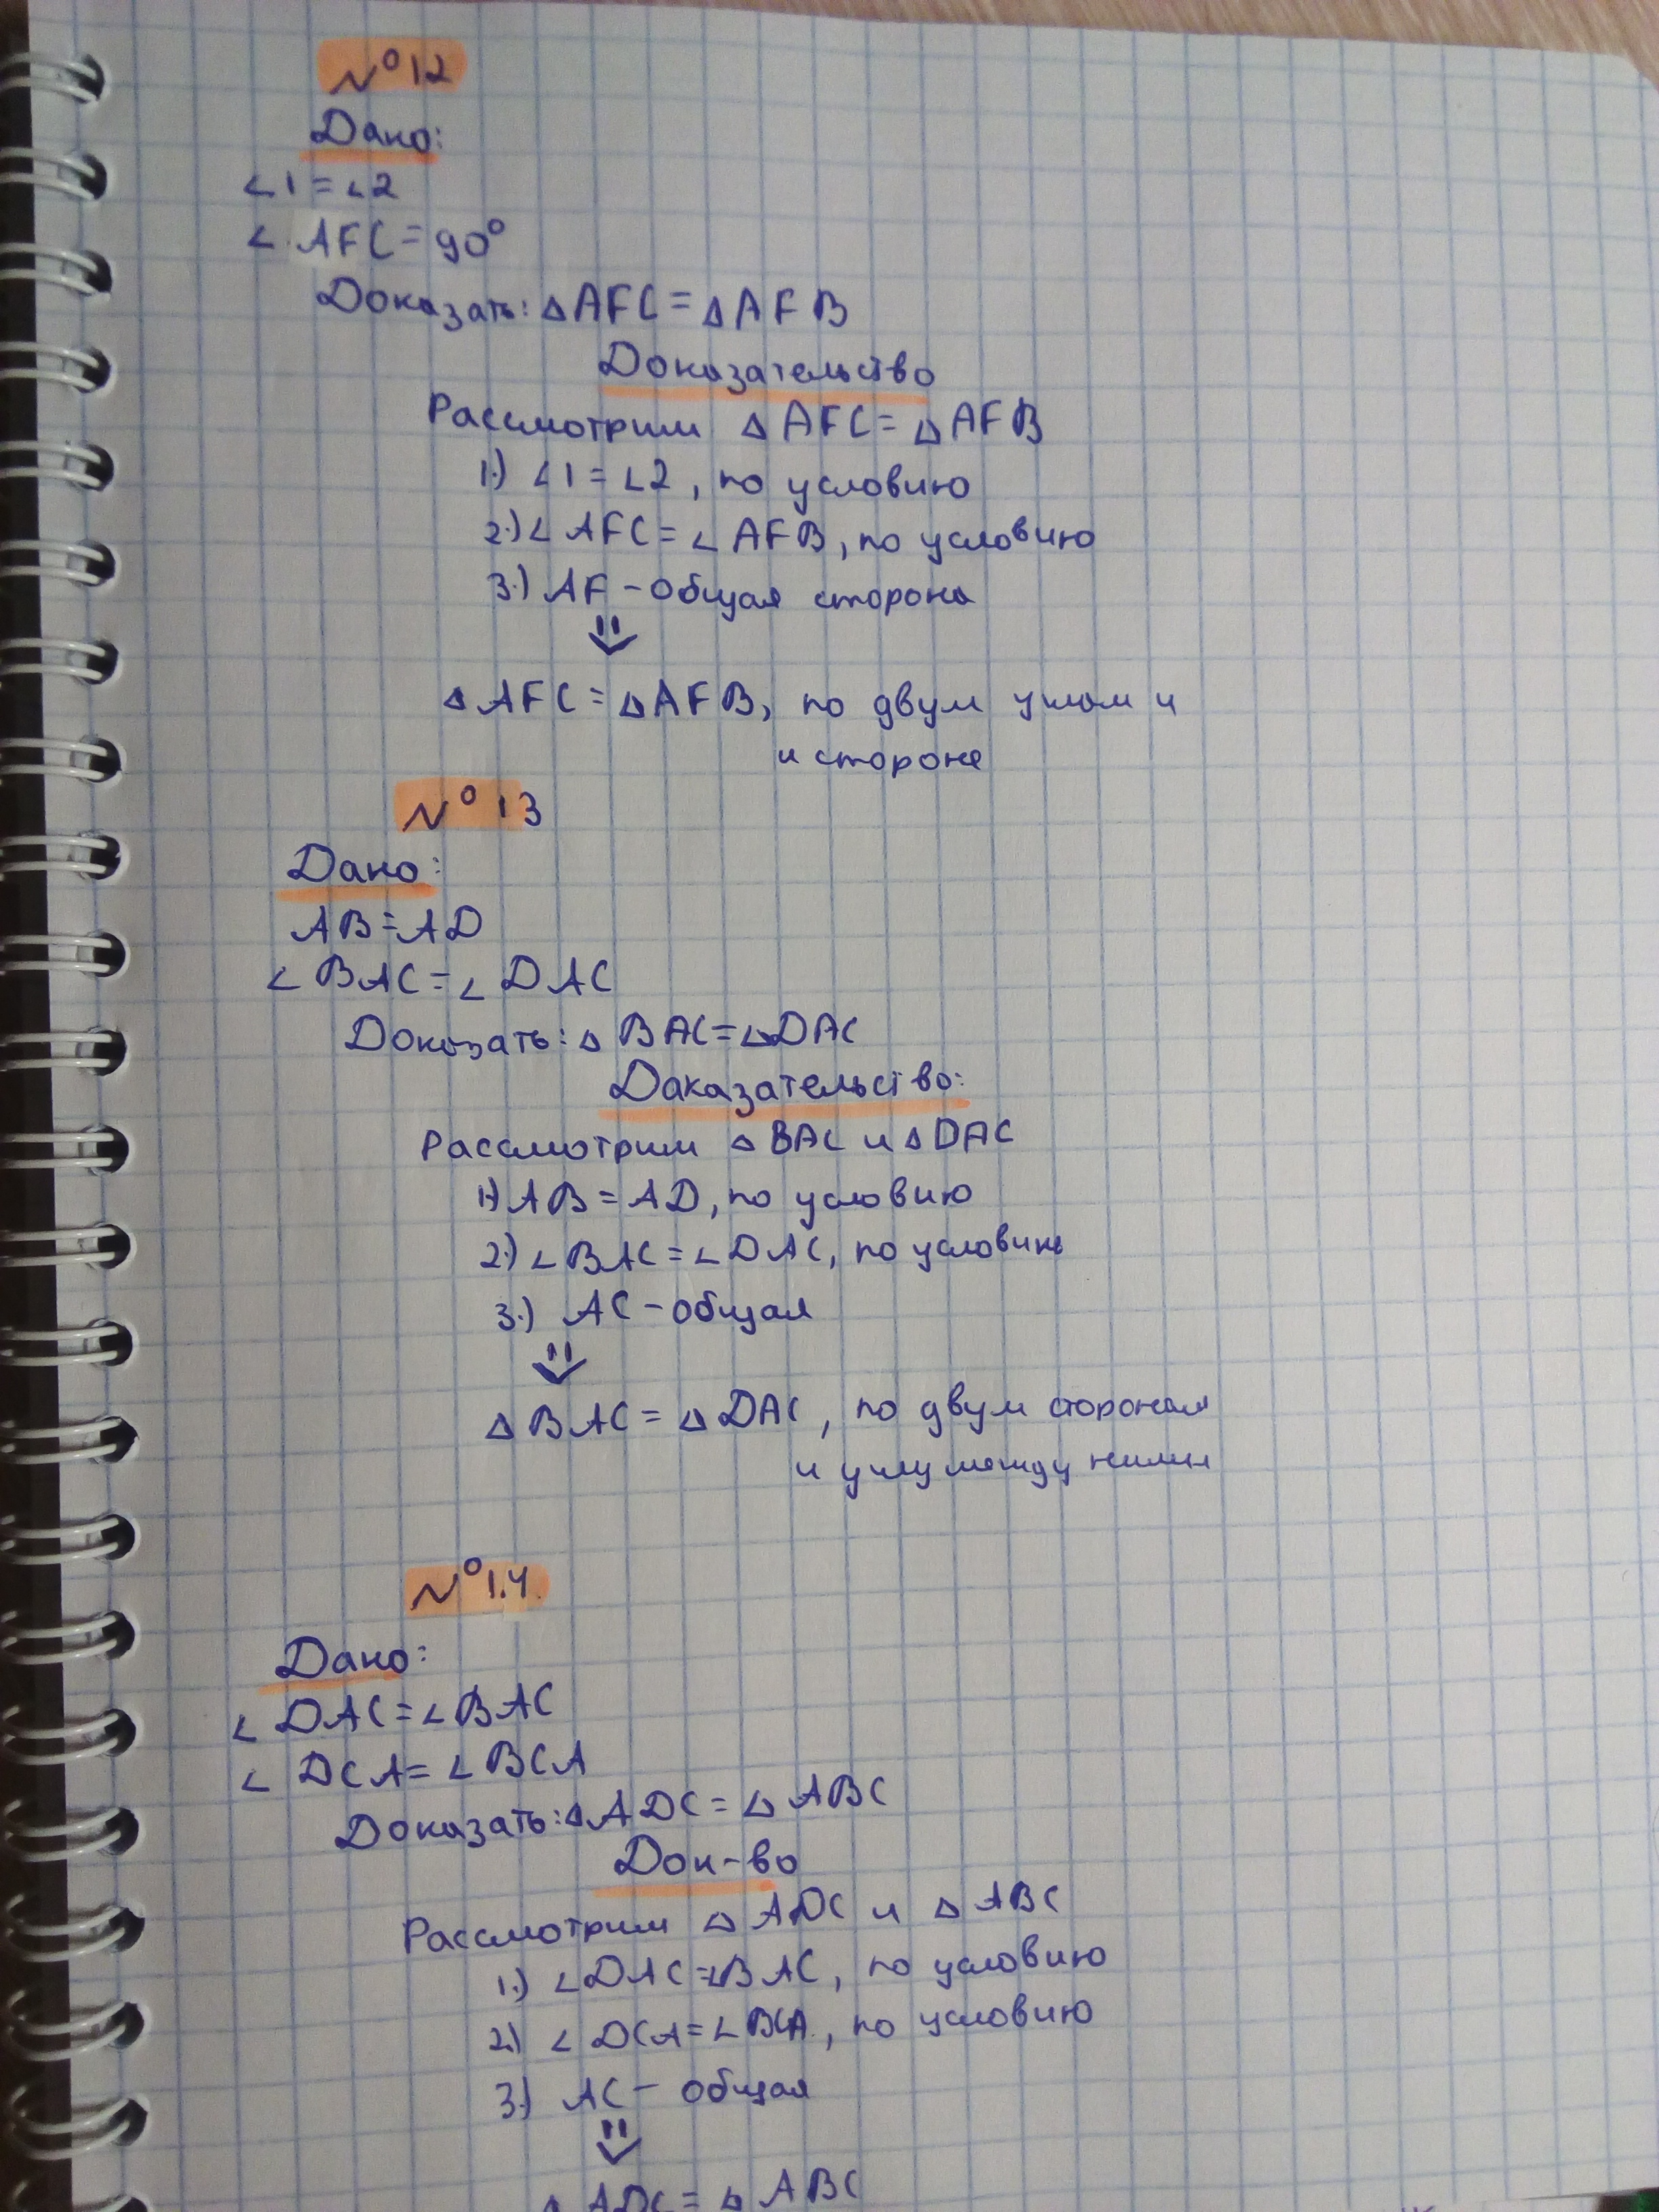 № 12
Дано:
∠1 = ∠2
∠ AFC = 90°
Доказать: △AFC = △AFB
Доказательство
Рассмотрим △ AFC = △ AFB
1.) ∠1 = ∠2, по условию
2.) ∠ AFC = ∠ AFB, по условию
3.) AF – общая сторона
⇓
△ AFC = △AFB, по двум углам и
и стороне
№ 13
Дано:
AB = AD
∠ BAC = ∠ DAC
Доказать: △ BAC = △DAC
Даказательство:
Рассмотрим △ BAC и △ DAC
1.) AB = AD, по условию
2.) ∠ BAC = ∠ DAC, по условию
3.) AC – общая
⇓
△ BAC = △ DAC, по двум сторонам
и углу между ними
№ 1.4.
Дано:
∠ DAC = ∠ BAC
∠ DCA = ∠ BCA
Доказать: △ADC = △ ABC
Док-во
Рассмотрим △ ADC и △ ABC
1.) ∠ DAC = ∠BAC, по условию
2.) ∠ DCA = ∠ BCA, по условию
3.) AC – общая
⇓
△ ADC = △ ABC